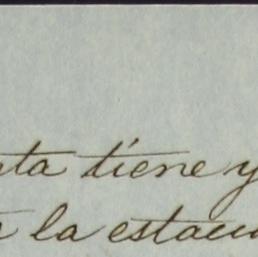 ta tiene y
la estacu